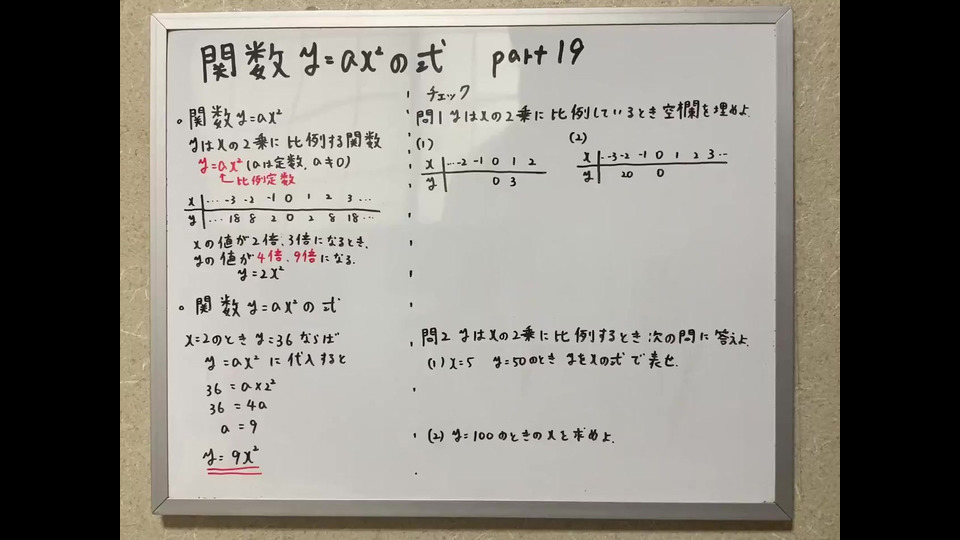 関数 y=ax²の式 part19
。関数 y=ax²
yはxの2乗に比例する関数
y=ax²(aは定数, a≠0)
比例定数
x … -3 -2 -1 0 1 2 3 …
y … 18 8 2 0 2 8 18 …
xの値が2倍、3倍になるとき、
yの値が4倍、9倍になる。
y=2x²
。関数 y=ax²の式
x=2のとき y=36 ならば
y=ax² に代入すると
36=a×2²
36=4a
a=9
y=9x²
チェック
問1 yはxの2乗に比例しているとき空欄を埋めよ.
(1)
x …-2 -1 0 1 2
y 0 3
(2)
x …-3 -2 -1 0 1 2 3 …
y 20 0
問2 yはxの2乗に比例するとき次の問に答えよ.
(1) x=5 y=50のとき yをxの式で表せ.
(2) y=100のときのxを求めよ.